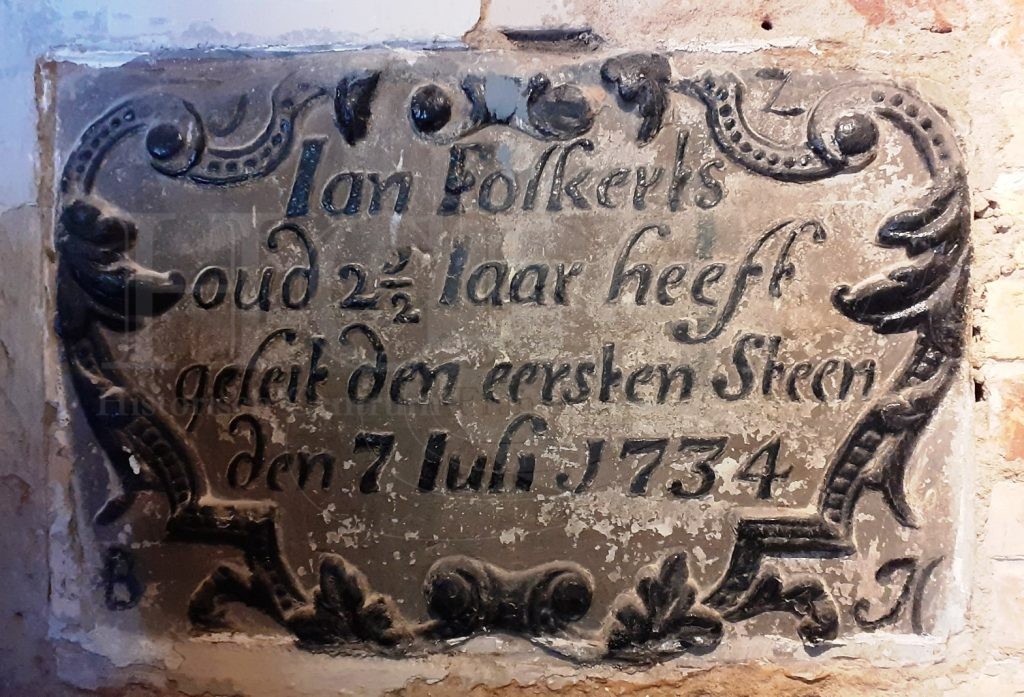 Z
Ian Folkerts
oud 2½ Iaar heeft
geleit den eersten Steen
den 7 Iuli 1734
B